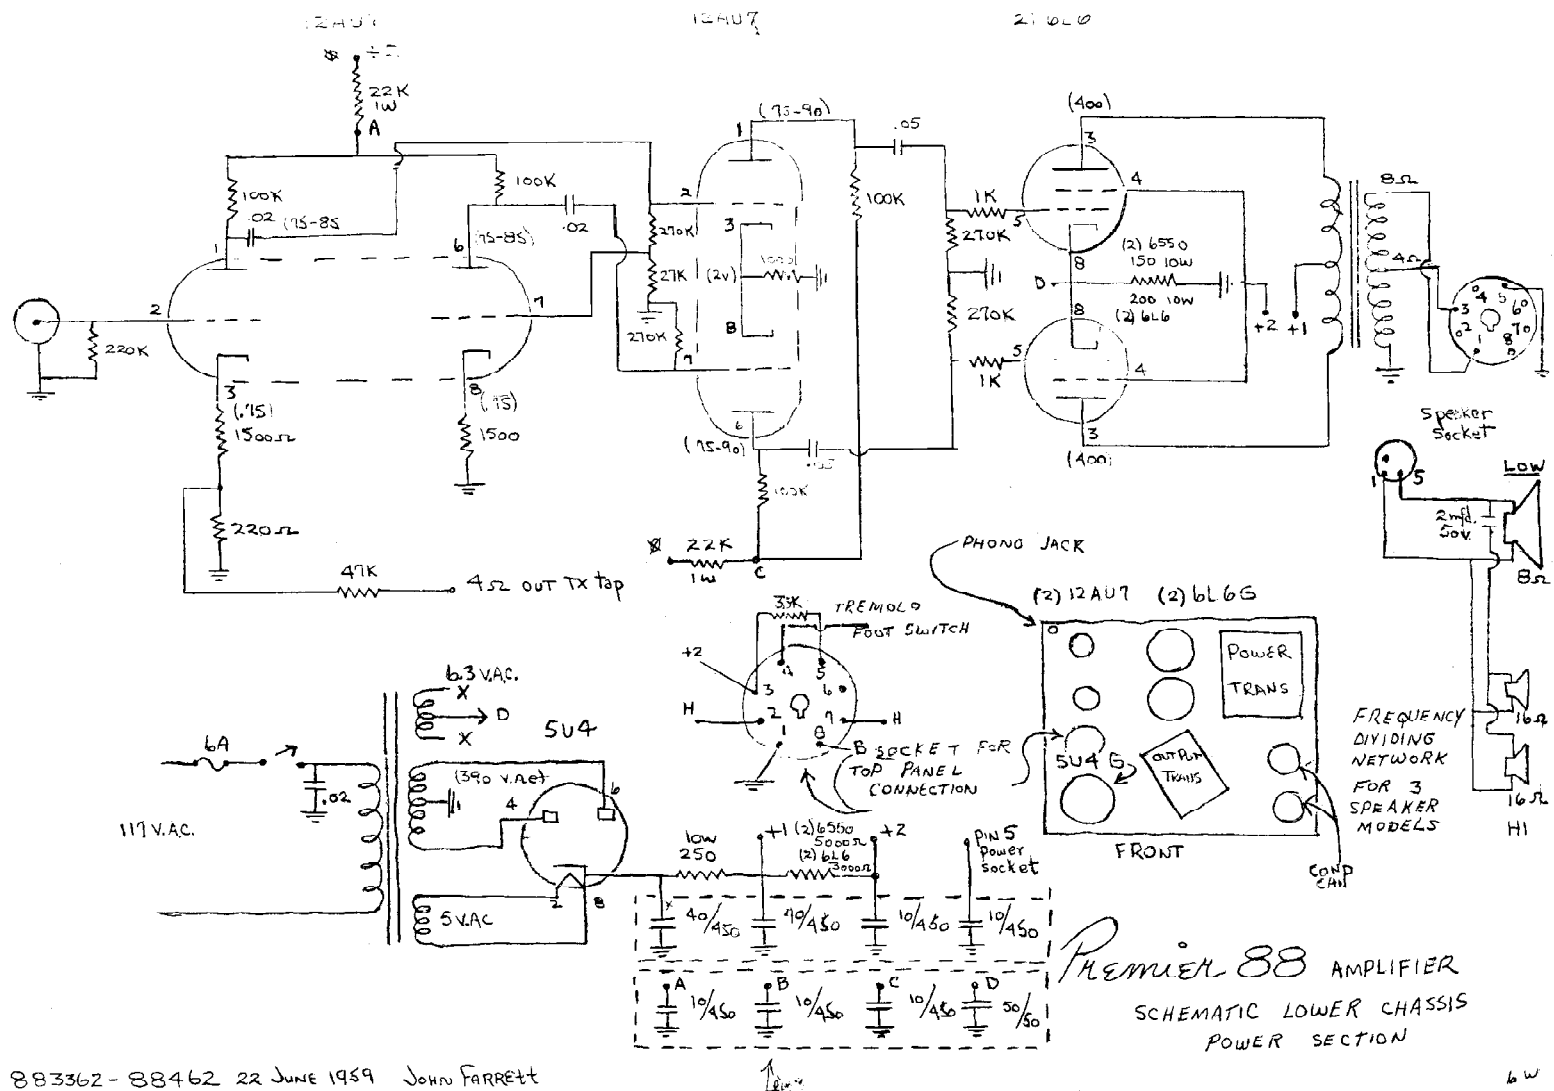 12AU7
12AU7
2) 6L6
22K
1W
A
100K
.02
(75-85
100K
.02
(75-85)
1
6
2
7
220K
3
(.75)
1500Ω
8
(.75)
1500
220Ω
47K
4Ω OUT TX tap
270K
27K
270K
(75-90)
1
2
3
(2V)
8
7
6
(75-90)
100K
.05
100K
22K
1W
C
1K
270K
270K
1K
(400)
3
4
5
8
(2) 6550
150 10W
D
200 10W
(2) 6L6
8
5
4
3
(400)
+2
+1
8Ω
4Ω
4
5
3
6
2
7
1
8
Speaker
Socket
1
5
LOW
2mfd.
50V.
8Ω
16Ω
16Ω
HI
FREQUENCY
DIVIDING
NETWORK
FOR 3
SPEAKER
MODELS
PHONO JACK
(2) 12AU7 (2) 6L6G
POWER
TRANS
5U4G
OUTPUT
TRANS
FRONT
COND
CAN
33K
TREMOLO
FOOT SWITCH
+2
4
5
3
6
H
2
7
H
1
8
B SOCKET FOR
TOP PANEL
CONNECTION
6.3 V.AC.
X
D
X
5U4
6A
.02
117 V.AC.
(390 V.Act
4
6
5 V.AC
2
8
10W
250
+1
(2) 6550
5000Ω
(2) 6L6
3000Ω
+2
PIN 5
power
socket
40/450
40/450
10/450
10/450
A
10/450
B
10/450
C
10/450
D
50/50
Premier 88 AMPLIFIER
SCHEMATIC LOWER CHASSIS
POWER SECTION
883362-88462 22 JUNE 1959 JOHN FARRETT
6W